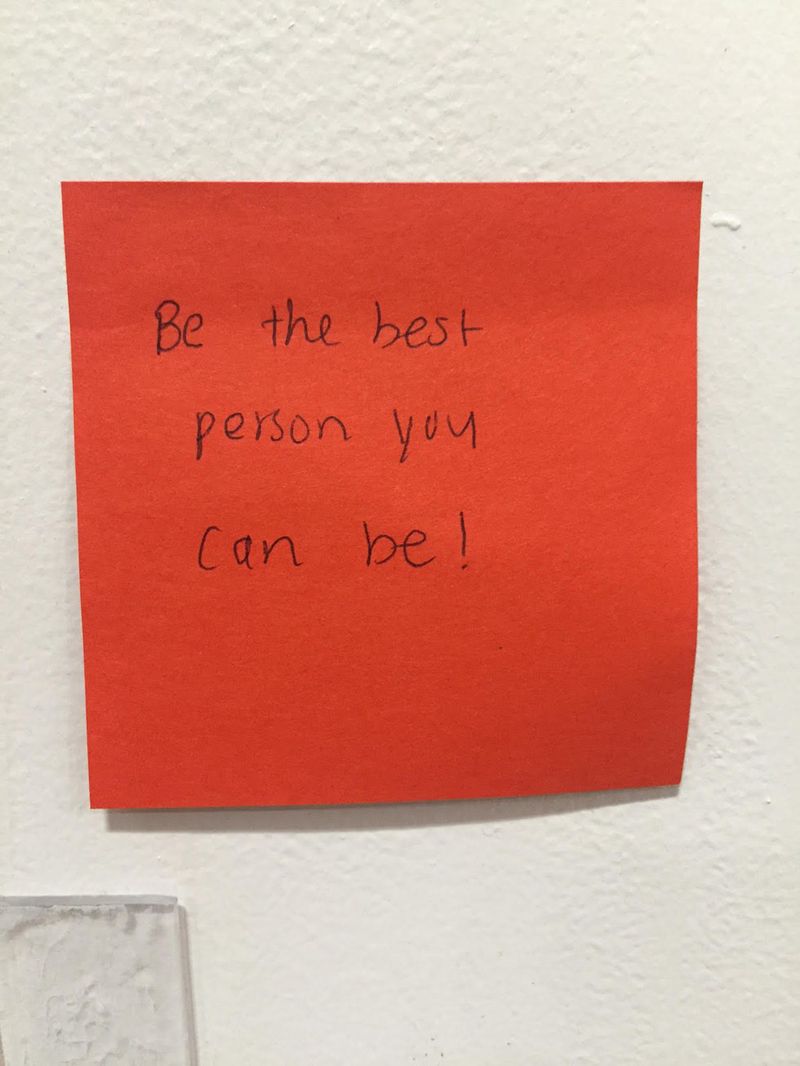 Be the best
person you
can be!